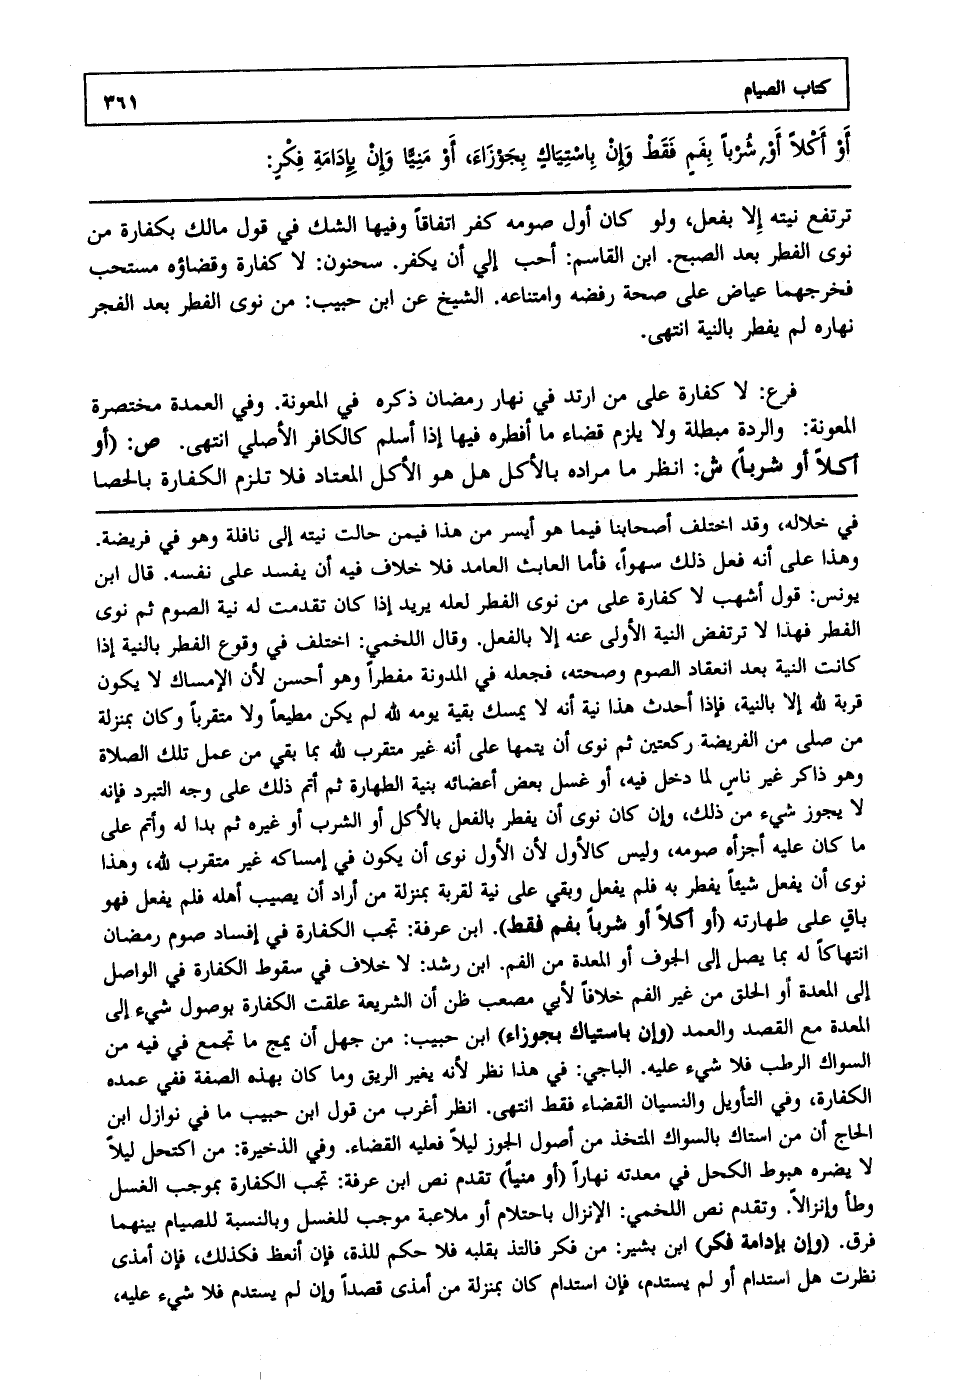 كتاب الصيام ٣٦١
أَوْ أَكْلاً أَوْ شُرْباً بِفَمٍ فَقَطْ وَإِنْ بِاسْتِيَاكٍ بِجَوْزَاءَ، أَوْ مَنِيًّا وَإِنْ بِإِدَامَةِ فِكْرٍ:
ترتفع نيته إلا بفعل، ولو كان أول صومه كفر اتفاقاً وفيها الشك في قول مالك بكفارة من
نوى الفطر بعد الصبح. ابن القاسم: أحب إلي أن يكفر. سحنون: لا كفارة وقضاؤه مستحب
فخرجهما عياض على صحة رفضه وامتناعه. الشيخ عن ابن حبيب: من نوى الفطر بعد الفجر
نهاره لم يفطر بالنية انتهى.
فرع: لا كفارة على من ارتد في نهار رمضان ذكره في المعونة. وفي العمدة مختصرة
المعونة: والردة مبطلة ولا يلزم قضاء ما أفطره فيها إذا أسلم كالكافر الأصلي انتهى. ص: (أو
أكلاً أو شرباً) ش: انظر ما مراده بالأكل هل هو الأكل المعتاد فلا تلزم الكفارة بالحصا
في خلاله، وقد اختلف أصحابنا فيما هو أيسر من هذا فيمن حالت نيته إلى نافلة وهو في فريضة.
وهذا على أنه فعل ذلك سهواً، فأما العابث العامد فلا خلاف فيه أن يفسد على نفسه. قال ابن
يونس: قول أشهب لا كفارة على من نوى الفطر لعله يريد إذا كان تقدمت له نية الصوم ثم نوى
الفطر فهذا لا ترتفض النية الأولى عنه إلا بالفعل. وقال اللخمي: اختلف في وقوع الفطر بالنية إذا
كانت النية بعد انعقاد الصوم وصحته، فجعله في المدونة مفطراً وهو أحسن لأن الإمساك لا يكون
قربة لله إلا بالنية، فإذا أحدث هذا نية أنه لا يمسك بقية يومه لله لم يكن مطيعاً ولا متقرباً وكان بمنزلة
من صلى من الفريضة ركعتين ثم نوى أن يتمها على أنه غير متقرب لله بما بقي من عمل تلك الصلاة
وهو ذاكر غير ناسٍ لما دخل فيه، أو غسل بعض أعضائه بنية الطهارة ثم أتم ذلك على وجه التبرد فإنه
لا يجوز شيء من ذلك، وإن كان نوى أن يفطر بالفعل بالأكل أو الشرب أو غيره ثم بدا له وأتم على
ما كان عليه أجزأه صومه، وليس كالأول لأن الأول نوى أن يكون في إمساكه غير متقرب لله، وهذا
نوى أن يفعل شيئاً يفطر به فلم يفعل وبقي على نية لقربة بمنزلة من أراد أن يصيب أهله فلم يفعل فهو
باق على طهارته (أو أكلاً أو شرباً بفم فقط). ابن عرفة: تجب الكفارة في إفساد صوم رمضان
انتهاكاً له بما يصل إلى الجوف أو المعدة من الفم. ابن رشد: لا خلاف في سقوط الكفارة في الواصل
إلى المعدة أو الحلق من غير الفم خلافاً لأبي مصعب ظن أن الشريعة علقت الكفارة بوصول شيء إلى
المعدة مع القصد والعمد (وإن باستياك بجوزاء) ابن حبيب: من جهل أن يمج ما تجمع في فيه من
السواك الرطب فلا شيء عليه. الباجي: في هذا نظر لأنه يغير الريق وما كان بهذه الصفة ففي عمده
الكفارة، وفي التأويل والنسيان القضاء فقط انتهى. انظر أغرب من قول ابن حبيب ما في نوازل ابن
الحاج أن من استاك بالسواك المتخذ من أصول الجوز ليلاً فعليه القضاء. وفي الذخيرة: من اكتحل ليلاً
لا يضره هبوط الكحل في معدته نهاراً (أو منياً) تقدم نص ابن عرفة: تجب الكفارة بموجب الغسل
وطأ وإنزالاً. وتقدم نص اللخمي: الإنزال باحتلام أو ملاعبة موجب للغسل وبالنسبة للصيام بينهما
فرق. (وإن بإدامة فكر) ابن بشير: من فكر فالتذ بقلبه فلا حكم للذة، فإن أنعظ فكذلك، فإن أمذى
نظرت هل استدام أو لم يستدم، فإن استدام كان بمنزلة من أمذى قصداً وإن لم يستدم فلا شيء عليه،